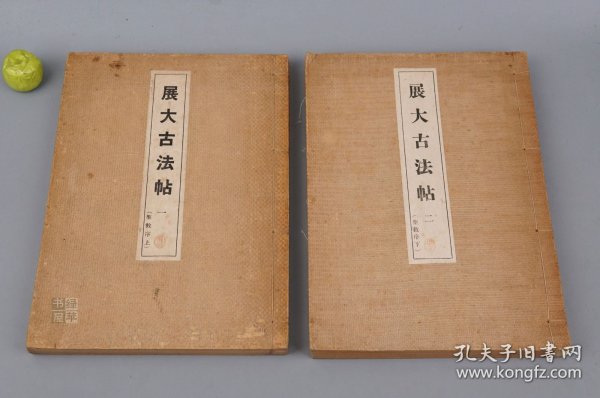 展大古法帖 一
(聖教序上)
展大古法帖 二
(聖教序下)
孔夫子旧书网
www.kongfz.com